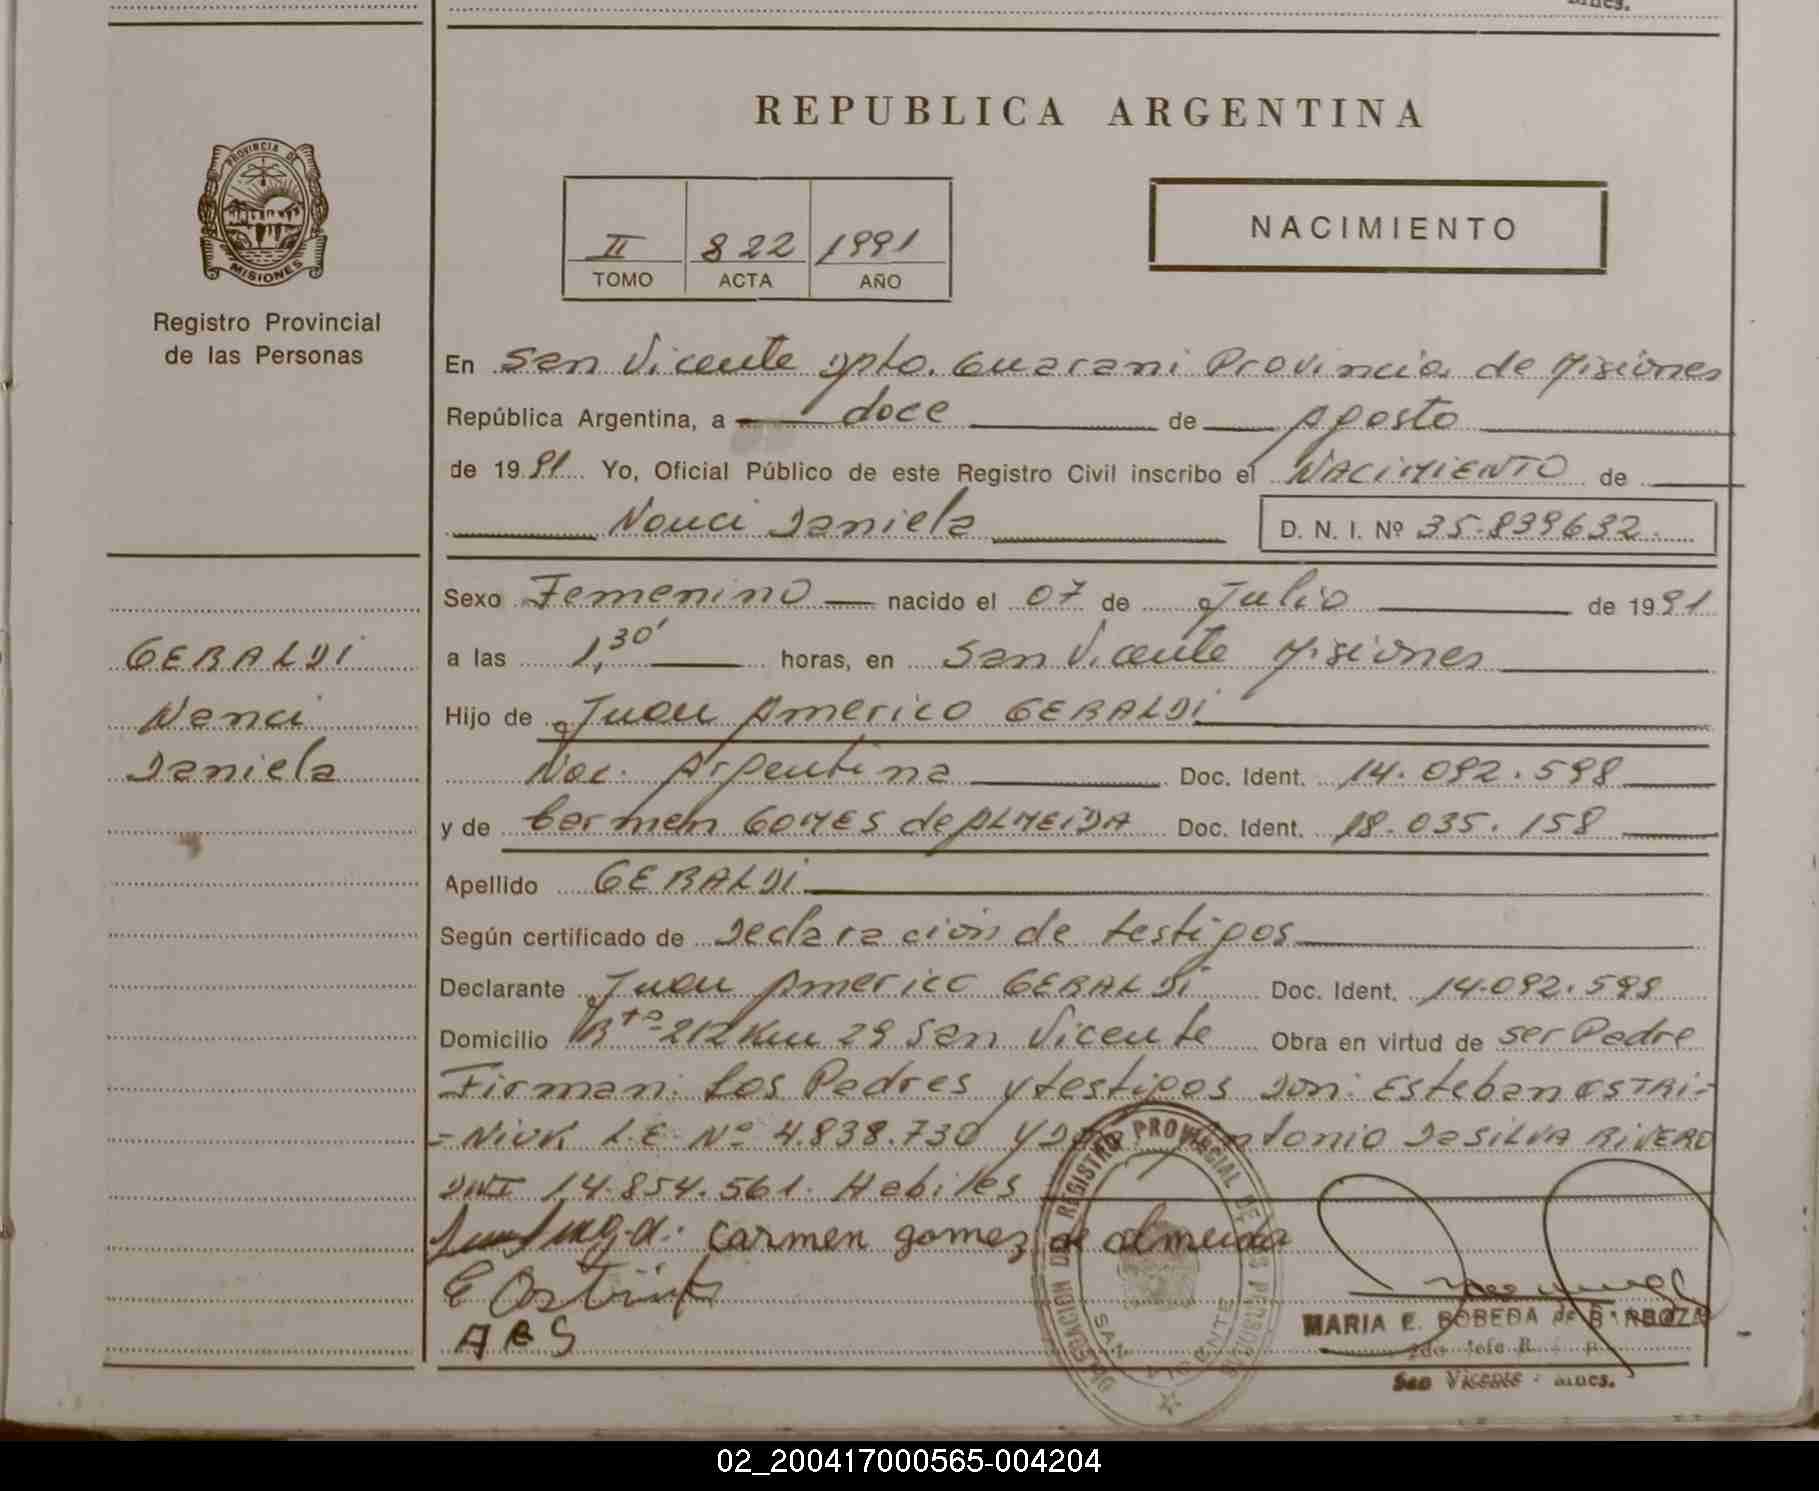 REPUBLICA ARGENTINA
PROVINCIA DE
MISIONES
Registro Provincial
de las Personas
II 822 1991
TOMO ACTA AÑO
NACIMIENTO
En San Vicente Dpto. Guarani Provincia de Misiones
República Argentina, a doce de Agosto
de 1991 Yo, Oficial Público de este Registro Civil inscribo el NACIMIENTO de
Nanci Daniela D. N. I. Nº 35.839632
GERALDI
Nanci
Daniela
Sexo Femenino nacido el 07 de Julio de 1991
a las 1,30' horas, en San Vicente Misiones
Hijo de Juan Americo GERALDI
Nac. Argentina Doc. Ident. 14.092.598
y de Carmen GOMES de ALMEIDA Doc. Ident. 18.035.158
Apellido GERALDI
Según certificado de Declaración de testigos
Declarante Juan Americo GERALDI Doc. Ident. 14.092.598
Domicilio Rta 212 Km 29 San Vicente Obra en virtud de ser Padre
Firman: Los Padres y testigos Don: Esteban OSTRI-
-NIUK L.E. Nº 4.838.730 y Don Antonio DaSILVA RIVERO
DNI 14.854.561. Habiles
Carmen gomez de almeida
A R S
DELEGACION DE REGISTRO PROVINCIAL DE LAS PERSONAS
SAN VICENTE
MARIA E. BOBEDA de BARBOZA
San Vicente - Mnes.
02_200417000565-004204